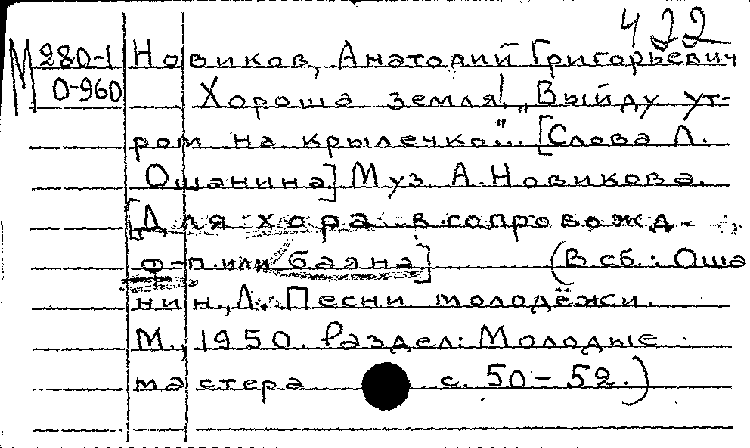 422
М 280-1 Новиков, Анатолий Григорьевич
0-960 Хороша земля! „Выйду ут-
ром на крылечко..." [Слова Л.
Ошанина] Муз. А. Новикова.
[Для хора в сопровожд.
ф-п. или баяна] (В сб.: Оша
нин, Л. Песни молодёжи.
М., 1950. Раздел: Молодые
мастера с. 50-52.)